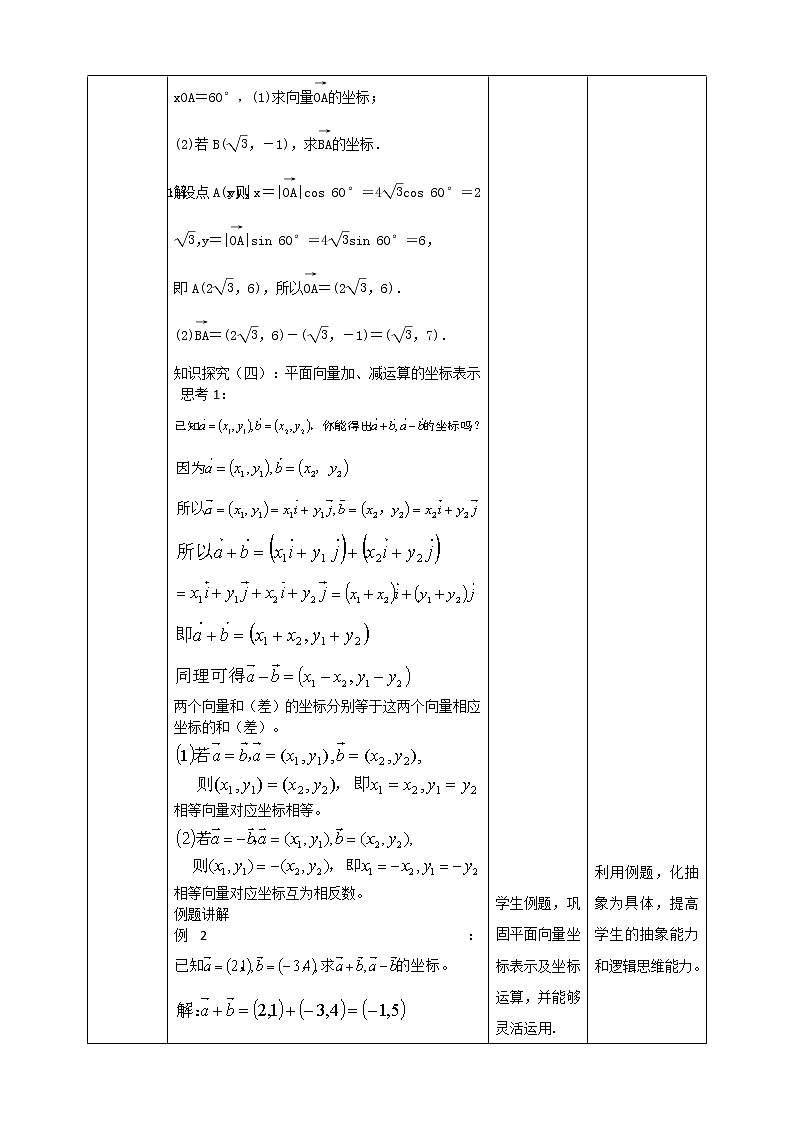 xOA＝60°,(1)求向量OA→的坐标;
(2)若 B(√3,－1),求BA→的坐标.
设点 A(x,y),则 x＝|OA→|cos 60°＝4√3cos 60°＝2
√3,y＝|OA→|sin 60°＝4√3sin 60°＝6,
即 A(2√3,6),所以OA→＝(2√3,6).
(2)BA→＝(2√3,6)－(√3,－1)＝(√3,7).
知识探究（四）：平面向量加、减运算的坐标表示
思考 1：
已知a→=(x₁,y₁),b→=(x₂,y₂)，你能得出a→+b→,a→−b→的坐标吗？
因为a→=(x₁,y₁),b→=(x₂，y₂)
所以a→=(x₁,y₁)=x₁i→+y₁j→,b→=(x₂，y₂)=x₂i→+y₂j→
所以a→+b→=(x₁i→+y₁j→)+(x₂i→+y₂j→)
=x₁i→+y₁j→+x₂i→+y₂j→=(x₁+x₂)i→+(y₁+y₂)j→
即a→+b→=(x₁+x₂,y₁+y₂)
同理可得a→−b→=(x₁−x₂,y₁−y₂)
两个向量和（差）的坐标分别等于这两个向量相应
坐标的和（差）。
(1)若a→=b→,a→=(x₁,y₁),b→=(x₂,y₂),
则(x₁,y₁)=(x₂,y₂)，即x₁=x₂,y₁=y₂
相等向量对应坐标相等。
(2)若a→=−b→,a→=(x₁,y₁),b→=(x₂,y₂),
则(x₁,y₁)=−(x₂,y₂)，即x₁=−x₂,y₁=−y₂
相等向量对应坐标互为相反数。
例题讲解
例 2 ：
已知a→=(2,1),b→=(−3,4),求a→+b→,a→−b→的坐标。
解:a→+b→=(2,1)+(−3,4)=(−1,5)
学生例题，巩
固平面向量坐
标表示及坐标
运算，并能够
灵活运用.
利用例题，化抽
象为具体，提高
学生的抽象能力
和逻辑思维能力。